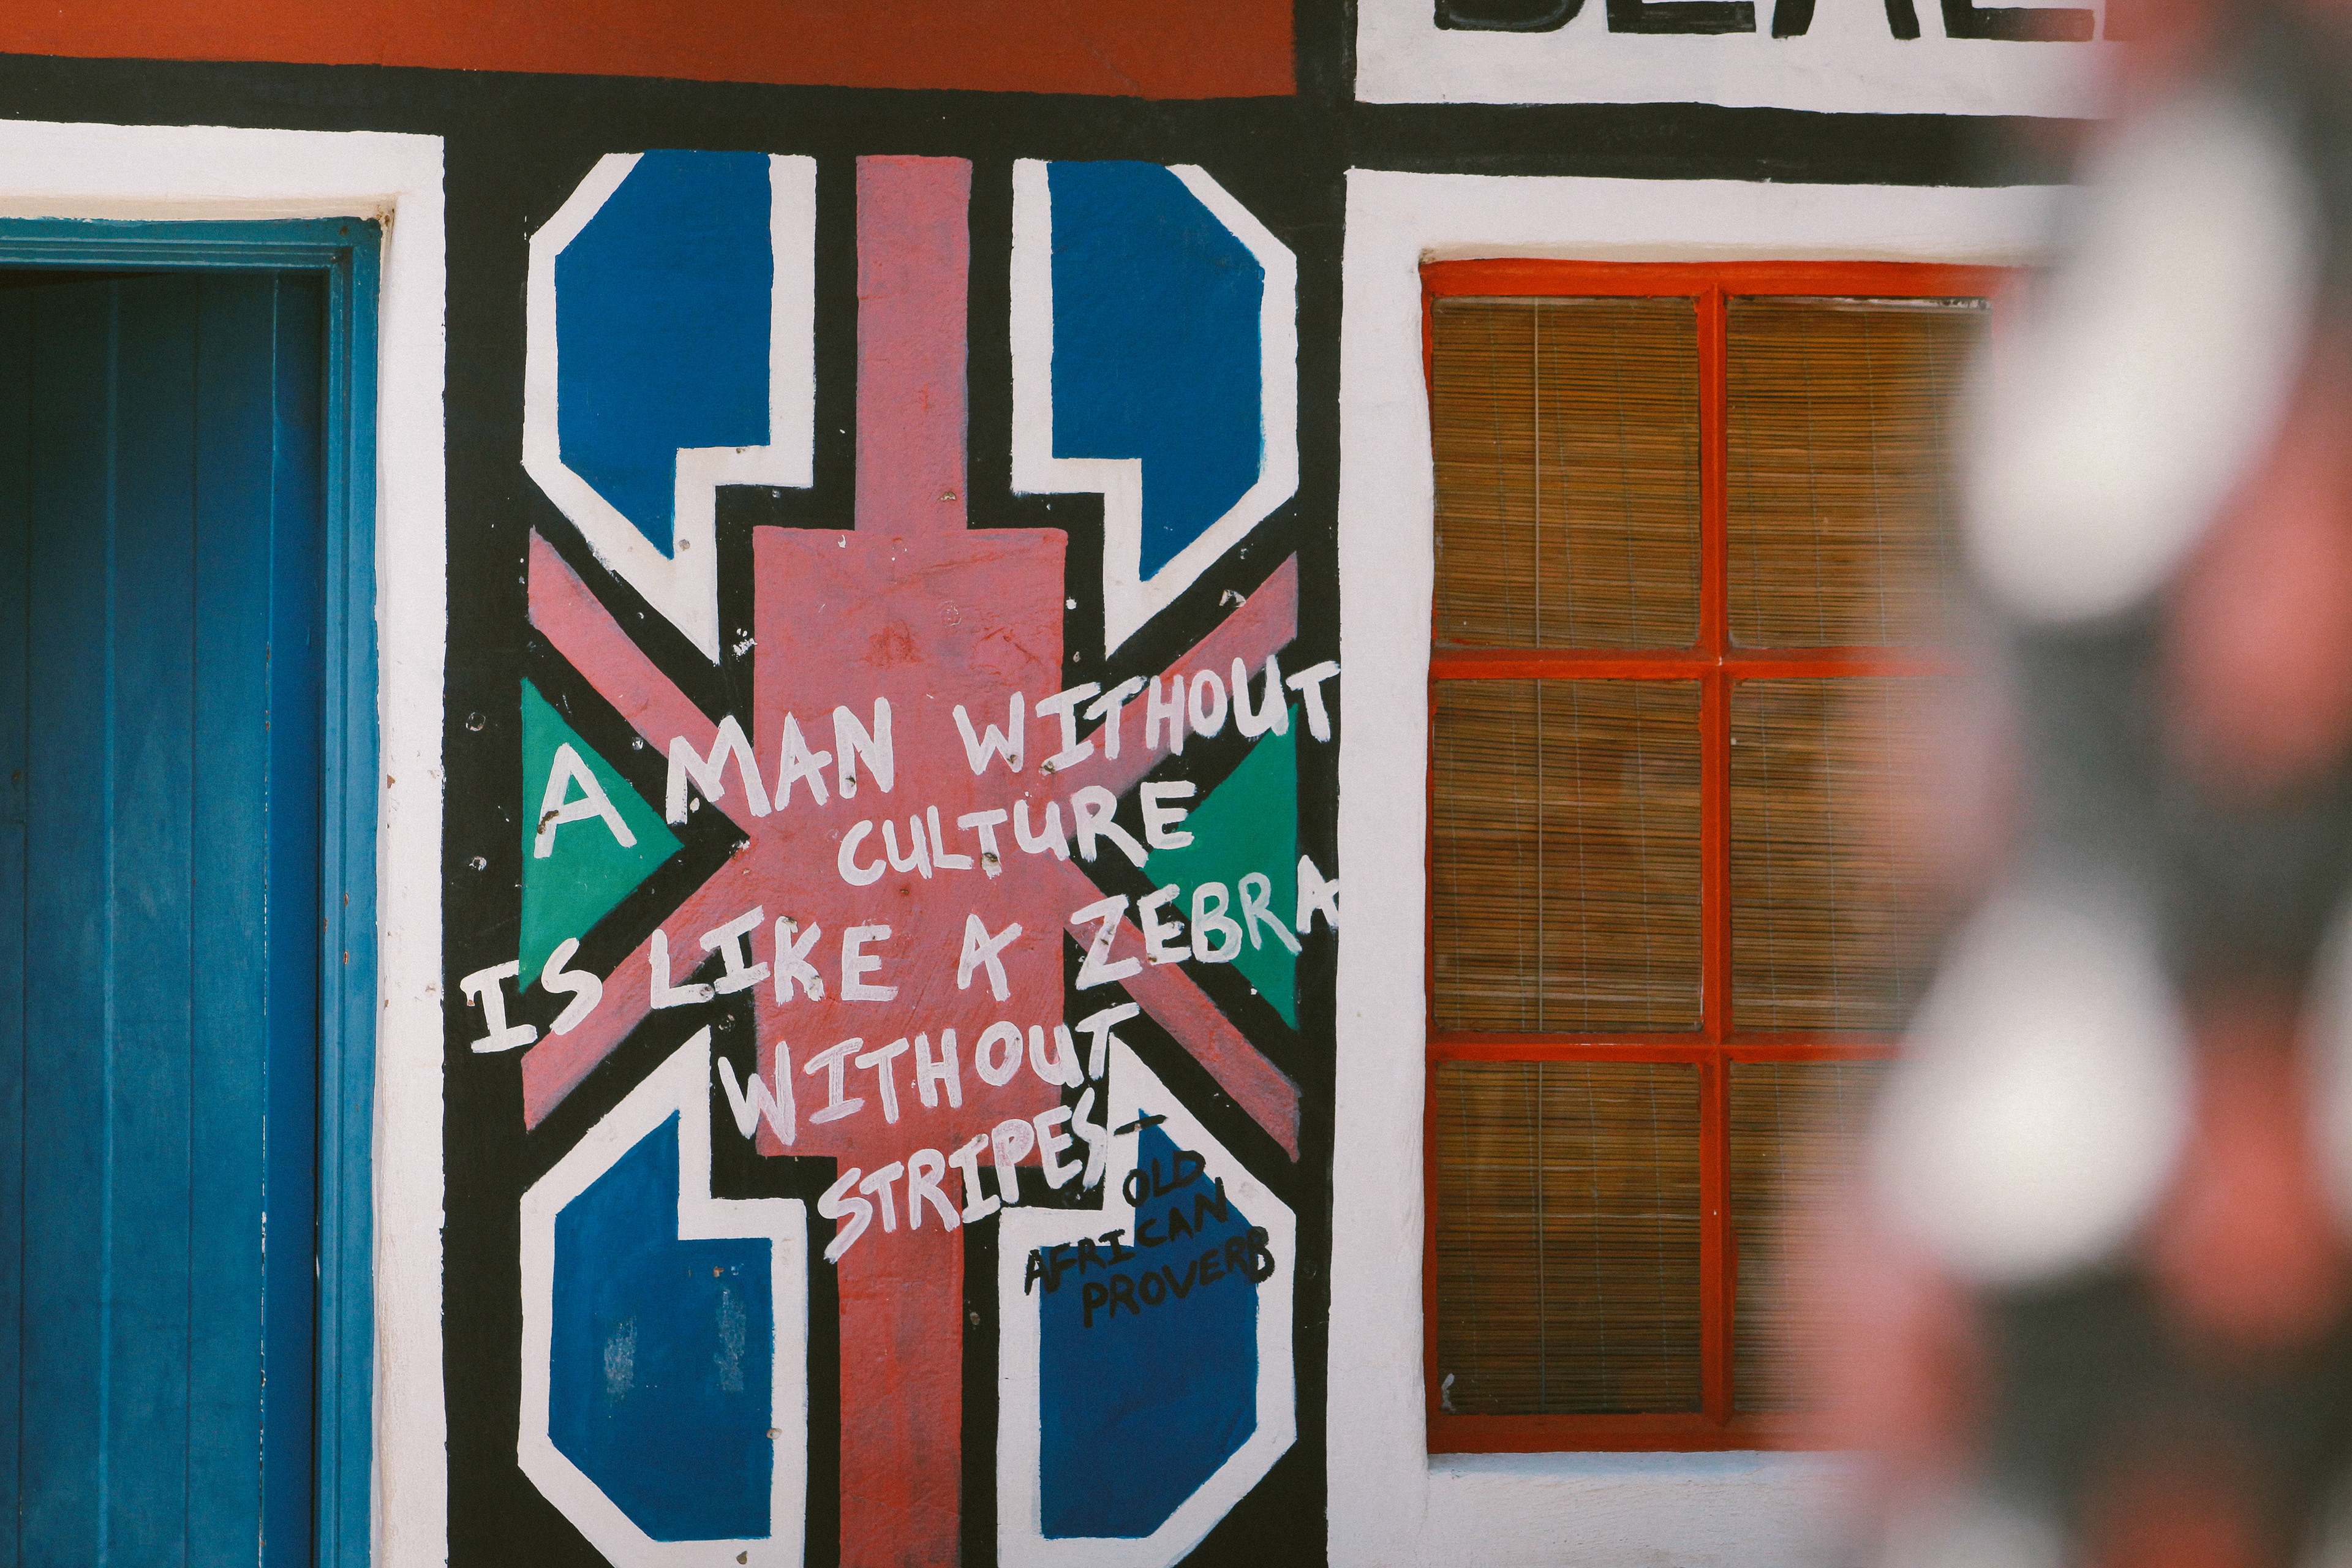 A MAN WITHOUT
CULTURE
IS LIKE A ZEBRA
WITHOUT
STRIPES-
OLD
AFRICAN
PROVERB